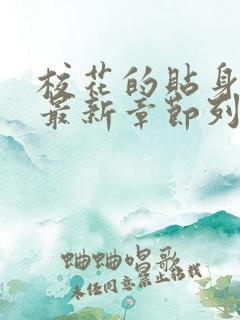 校花的贴身
最新章节列
蛐蛐唱歌
未经同意禁止转载